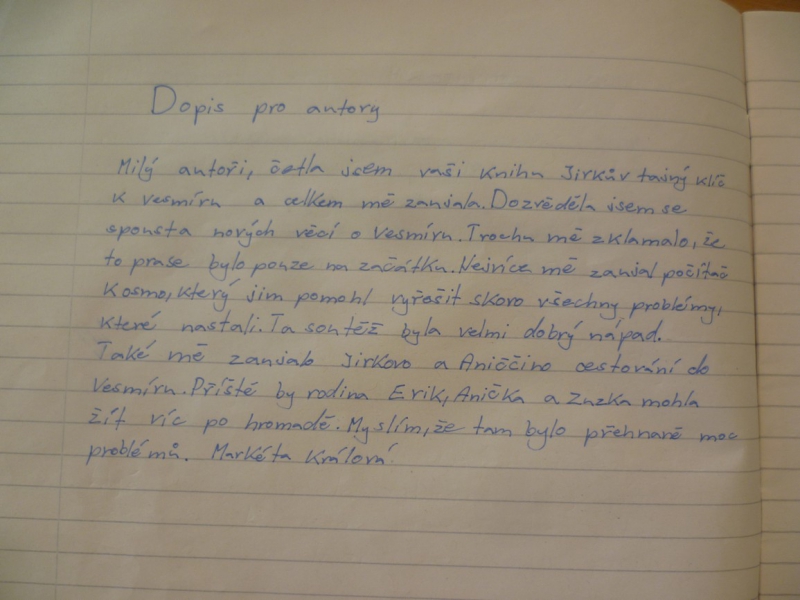 Dopis pro autory
Milý autoři, četla jsem vaši knihu Jirkův tajný klíč
k vesmíru a celkem mě zaujala. Dozvěděla jsem se
spousta nových věcí o Vesmíru. Trochu mě zklamalo, že
to prase bylo pouze na začátku. Nejvíce mě zaujal počítač
Kosmo, který jim pomohl vyřešit skoro všechny problémy,
které nastali. Ta soutěž byla velmi dobrý nápad.
Také mě zaujalo Jirkovo a Aniččino cestování do
Vesmíru. Příště by rodina Erik, Anička a Zuzka mohla
žít víc po hromadě. Myslím, že tam bylo přehnaně moc
problémů. Markéta Králová